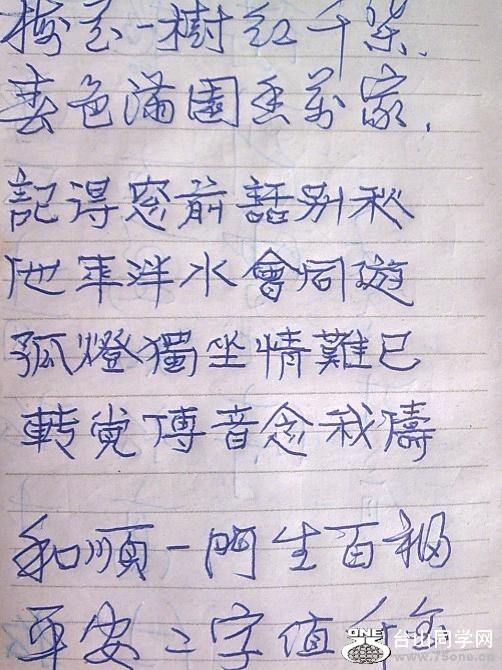 梅花一樹紅千朶.
春色滿園香萬家.
記得窓前話别秋
他年泮水會同遊
孤燈獨坐情難已
轉覺傳音念我儔
和順一門生百福
平安二字值千金
ONE
台山同学网
www.75one.cn